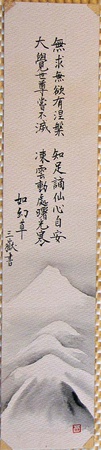 無求無欲有涅槃　知足謫仙心自安
大覺世尊嘗不滅　凍雲動處曙光寒
如幻草
三嶽書